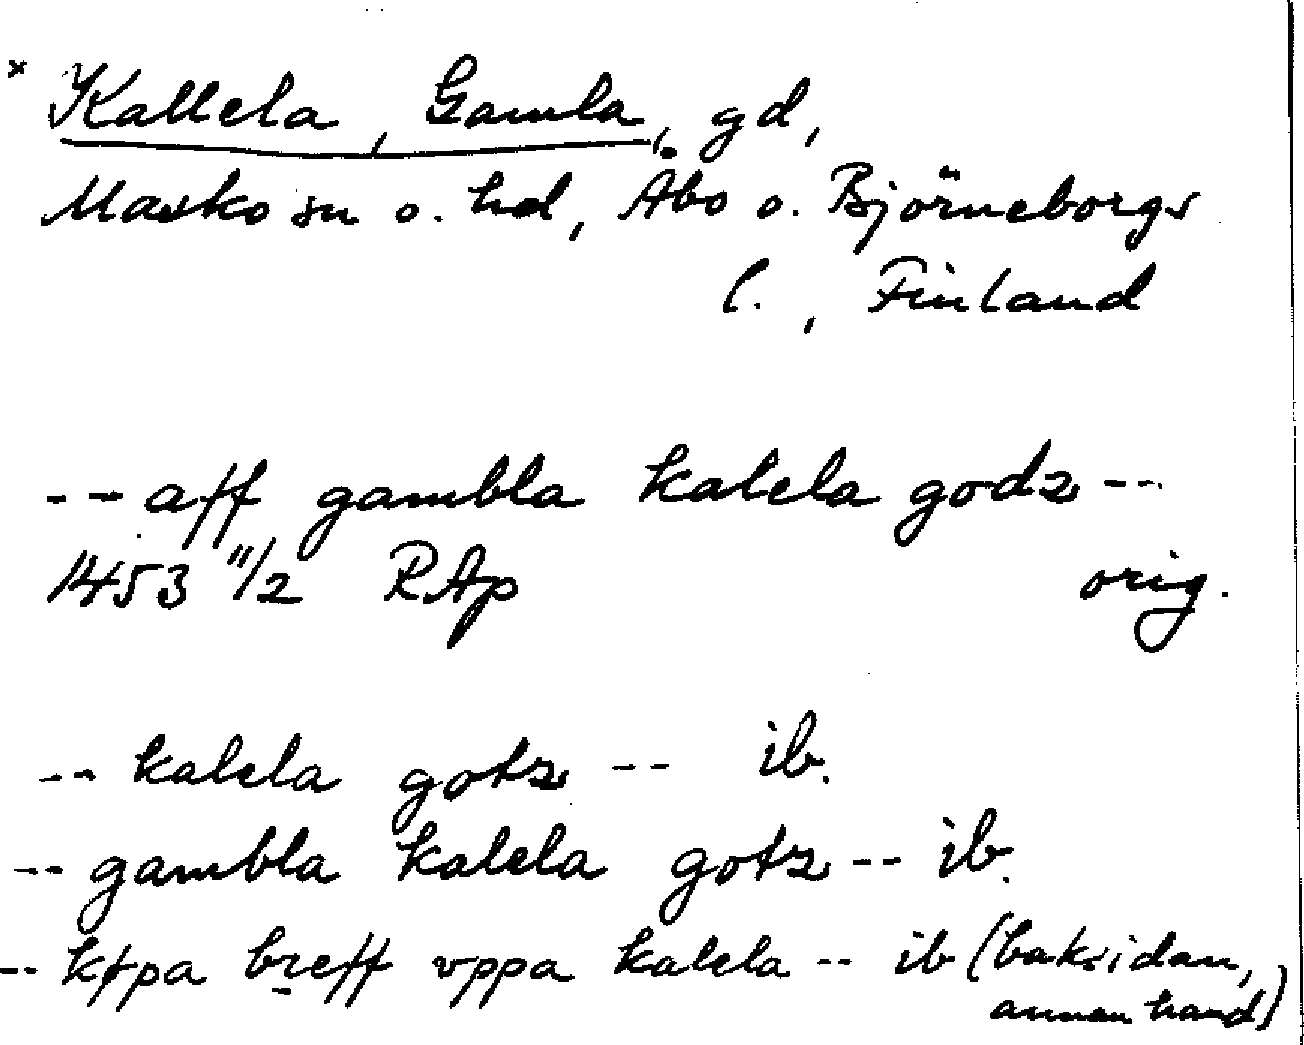 × Kallela, Gamla, gd,
Masko sn o. hd, Åbo o. Björneborgs
l., Finland
-- aff gambla kalela godz --
1453 11/2 RAp orig.
-- kalela gotz -- ib.
-- gambla kalela gotz -- ib.
-- køpa breff vppa kalela -- ib (baksidan,
annan hand)